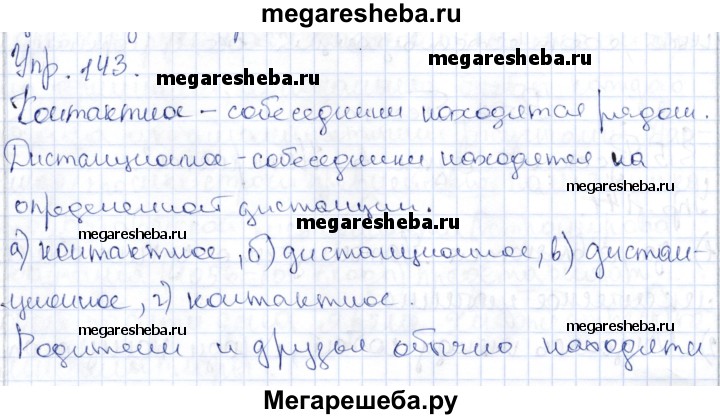 megaresheba.ru
Упр. 143.
megaresheba.ru
megaresheba.ru
Контактное - собеседники находятся рядом.
Дистанционное - собеседники находятся на
megaresheba.ru
определенной дистанции.
megaresheba.ru
а) контактное, б) дистанционное, в) дистан-
ционное, г) контактное.
megaresheba.ru
megaresheba.ru
Родители и друзья обычно находятс
Мегарешеба.ру